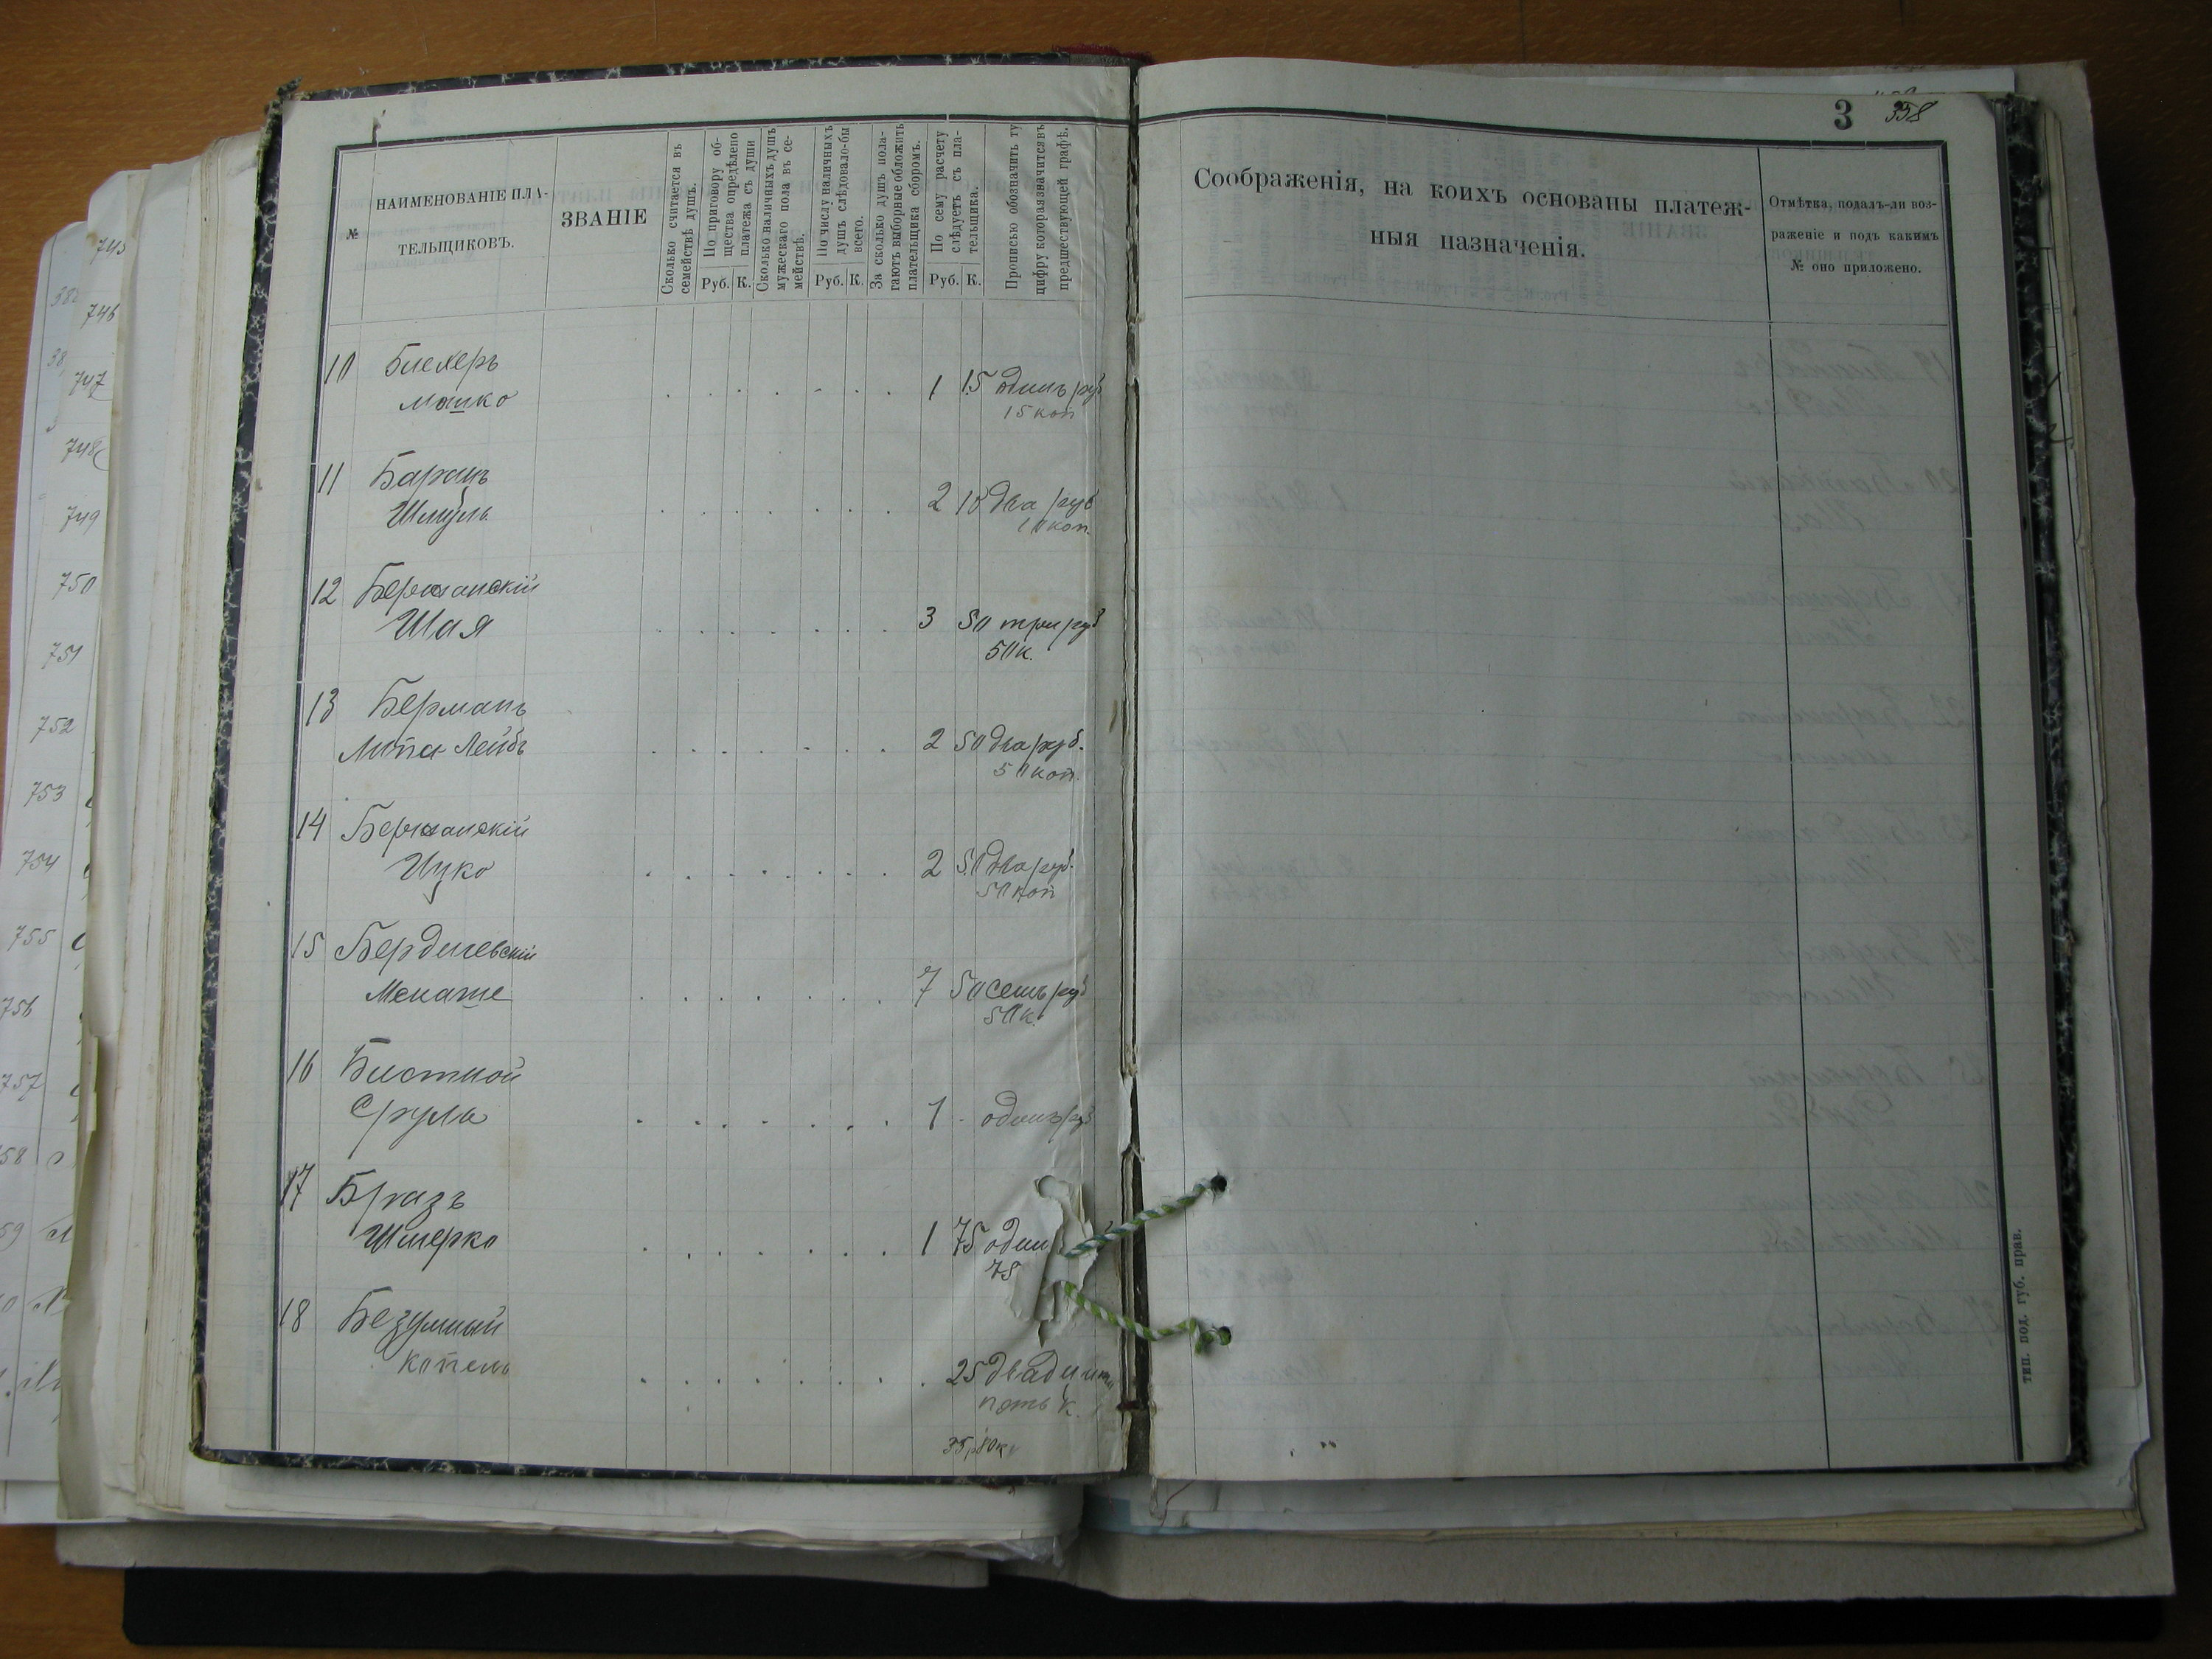 3 358
№
НАИМЕНОВАНІЕ ПЛА-
ТЕЛЬЩИКОВЪ.
ЗВАНІЕ
Сколько считается въ
семействѣ душъ.
По приговору об-
щества опредѣлено
платежа съ души
Руб. К.
Сколько наличныхъ душъ
мужескаго пола въ се-
мействѣ.
По числу наличныхъ
душъ слѣдовало-бы
всего.
Руб. К.
За сколько душъ пола-
гаютъ выборные обложить
плательщика сборомъ.
По сему расчету
слѣдуетъ съ пла-
тельщика.
Руб. К.
Прописью обозначить ту
цифру которая значится въ
предшествующей графѣ.
Соображенія, на коихъ основаны платеж-
ныя назначенія.
Отмѣтка, подалъ-ли воз-
раженіе и подъ какимъ
№ оно приложено.
10 Блехеръ
Мошко 1 15 одинъ руб
15 коп
11 Баранъ
Шмуль 2 10 два руб
10 коп.
12 Бершанскій
Шая 3 50 три руб
50 к.
13 Берманъ
Липа Лейбъ 2 50 два руб.
50 коп.
14 Бершанскій
Ицко 2 50 два руб.
50 коп
15 Бердичевскій
Менаше 7 50 семь руб
50 к.
16 Бистной
Сруль 1 - одинъ руб
17 Бразъ
Шмерко 1 75 один
75
18 Безумный
Копель 25 двадцать
пять к.
35 р 80 к
тип. под. губ. прав.
745
746
747
748
749
750
751
752
753
754
755
756
757
58
59